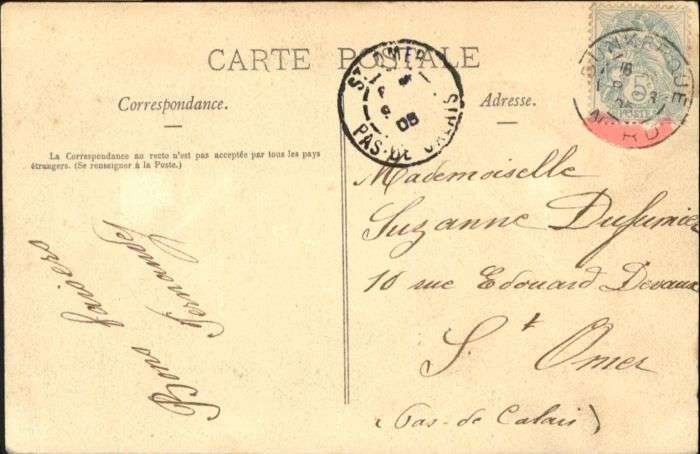 CARTE POSTALE
Correspondance.
Adresse.
La Correspondance au recto n'est pas acceptée par tous les pays
étrangers. (Se renseigner à la Poste.)
Bons baisers
Fernande
Mademoiselle
Suzanne Dufumier
10 rue Edouard Devaux
St Omer
(Pas-de Calais)
ST OMER
05
PAS-DE CALAIS
DUNKERQUE
5
POSTE